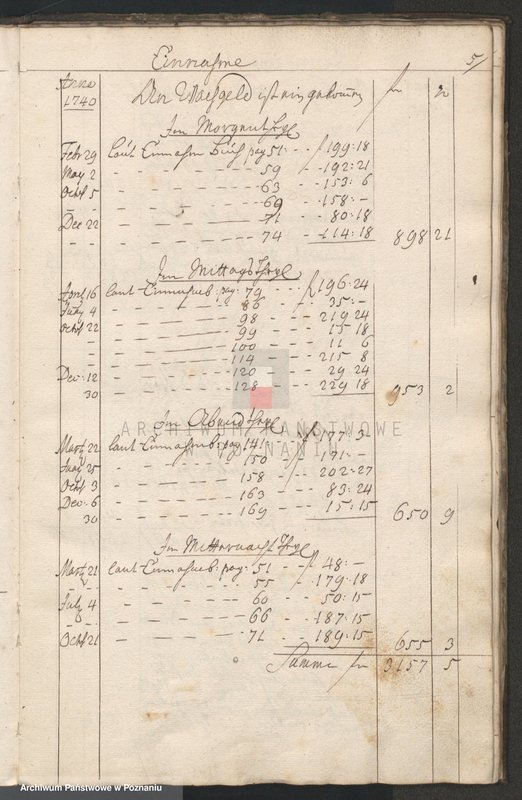 Einnahme
5
Anno
1740
Den Wachgeld ist ein gekom̄en
fr
Im Morgent Theyl
Febr 29 laut Einnahm Buch pag 51 - - f 199:18
May 2 - - - 59 - - 192:21
Octbr 5 - - - 63 - - 153: 6
- - - 69 - - 158: -
Dec 22 - - - 71 - - 80:18
- - - 74 - - 114:18 898 21
Im Mittags Theyl
April 16 laut Einnahmeb: pag: 79 - - f 196:24
July 4 - - - 86 - - 35: -
Octbr 22 - - - 98 - - 219 24
- - - 99 - - 15 18
- - - 100 - - 11 6
- - - 114 - - 215 8
Dec: 12 - - - 120 - - 29 24
30 - - - 128 - - 229 18 953 2
Im Abend Theyl
Marty 22 laut Einnahmeb: pag 141 - - f 177: 3-
July 25 - - - 150 - - 171: -
Octbr 3 - - - 158 - - 202:27
Dec: 6 - - - 163 - - 83:24
30 - - - 169 - - 15:15 650 9
Im Mitternacht Theyl
Marty 21 laut Einnahmeb: pag: 51 - - f 48: -
- - - 55 - - 179:18
July 4 - - - 60 - - 50:15
- - - 66 - - 187:15
Octbr 21 - - - 71 - - 189:15 655 3
Summa fr 3157 5
ARCHIWUM PAŃSTWOWE
W POZNANIU
Archiwum Państwowe w Poznaniu